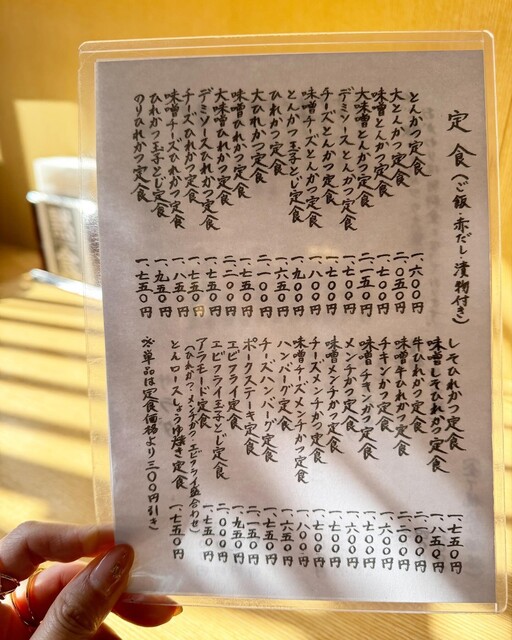 定食(ご飯・赤だし 漬物付き)
とんかつ定食 一、六〇〇円
大とんかつ定食 二、〇五〇円
味噌とんかつ定食 一、七〇〇円
大味噌とんかつ定食 二、一五〇円
デミソースとんかつ定食 一、七〇〇円
チーズとんかつ定食 一、七〇〇円
味噌チーズとんかつ定食 一、八〇〇円
とんかつ玉子とじ定食 一、九〇〇円
ひれかつ定食 一、六五〇円
大ひれかつ定食 二、一〇〇円
味噌ひれかつ定食 一、七五〇円
大味噌ひれかつ定食 二、二〇〇円
デミソースひれかつ定食 一、七五〇円
チーズひれかつ定食 一、七五〇円
味噌チーズひれかつ定食 一、八五〇円
ひれかつ玉子とじ定食 一、九五〇円
のりひれかつ定食 一、七五〇円
しそひれかつ定食 一、七五〇円
味噌しそひれかつ定食 一、八五〇円
牛ひれかつ定食 二、一〇〇円
味噌牛ひれかつ定食 二、二〇〇円
チキンかつ定食 一、六〇〇円
味噌チキンかつ定食 一、七〇〇円
メンチかつ定食 一、六〇〇円
味噌メンチかつ定食 一、七〇〇円
チーズメンチかつ定食 一、七〇〇円
味噌チーズメンチかつ定食 一、八〇〇円
ハンバーグ定食 一、六五〇円
チーズハンバーグ定食 一、七五〇円
ポークステーキ定食 二、一五〇円
エビフライ定食 一、九五〇円
エビフライ玉子とじ定食 二、〇〇〇円
アラモード定食 一、七五〇円
(ひれかつ・メンチかつ・エビフライ盛合わせ)
とんロースしょうゆ焼き定食 一、七五〇円
※単品は定食価格より三〇〇円引き)